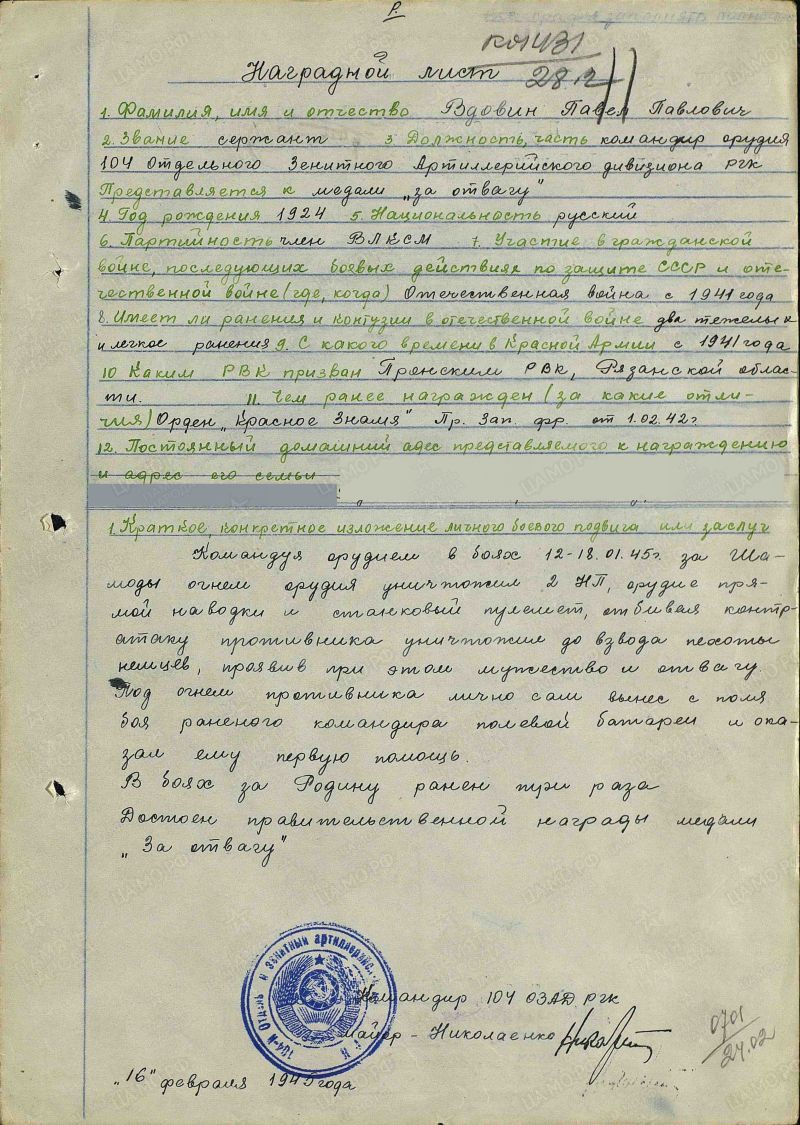 Р.
КФ1431
28.12
11
Наградной лист
1. Фамилия, имя и отчество Вдовин Павел Павлович
2. Звание сержант 3 Должность, часть командир орудия
104 Отдельного Зенитного Артиллерийского дивизиона РГК
Представляется к медали „за отвагу"
4. Год рождения 1924 5. Национальность русский
6. Партийность член ВЛКСМ 7. Участие в гражданской
войне, последующих боевых действиях по защите СССР и оте-
чественной войне (где, когда) Отечественная война с 1941 года
8. Имеет ли ранения и контузии в отечественной войне два тяжелых
и легкое ранения 9. С какого времени в Красной Армии с 1941 года
10 Каким РВК призван Пронским РВК, Рязанской облас-
ти. 11. Чем ранее награжден (за какие отли-
чия) Орден „Красное Знамя" Пр. Зап. фр. от 1.02.42г.
12. Постоянный домашний адес представляемого к награждению
и адрес его семьи
1. Краткое, конкретное изложение личного боевого подвига или заслуг
Командуя орудием в боях 12-18.01.45г. за Ша-
моды огнем орудия уничтожил 2 НП, орудие пря-
мой наводки и станковый пулемет, отбивая контр-
атаку противника уничтожил до взвода пехоты
немцев, проявив при этом мужество и отвагу.
Под огнем противника лично сам вынес с поля
боя раненого командира полевой батареи и ока-
зал ему первую помощь.
В боях за Родину ранен три раза
Достоен правительственной награды медали
„За отвагу"
Командир 104 ОЗАД РГК
майор - Николаенко
0701
24.02
„16" февраля 1945 года